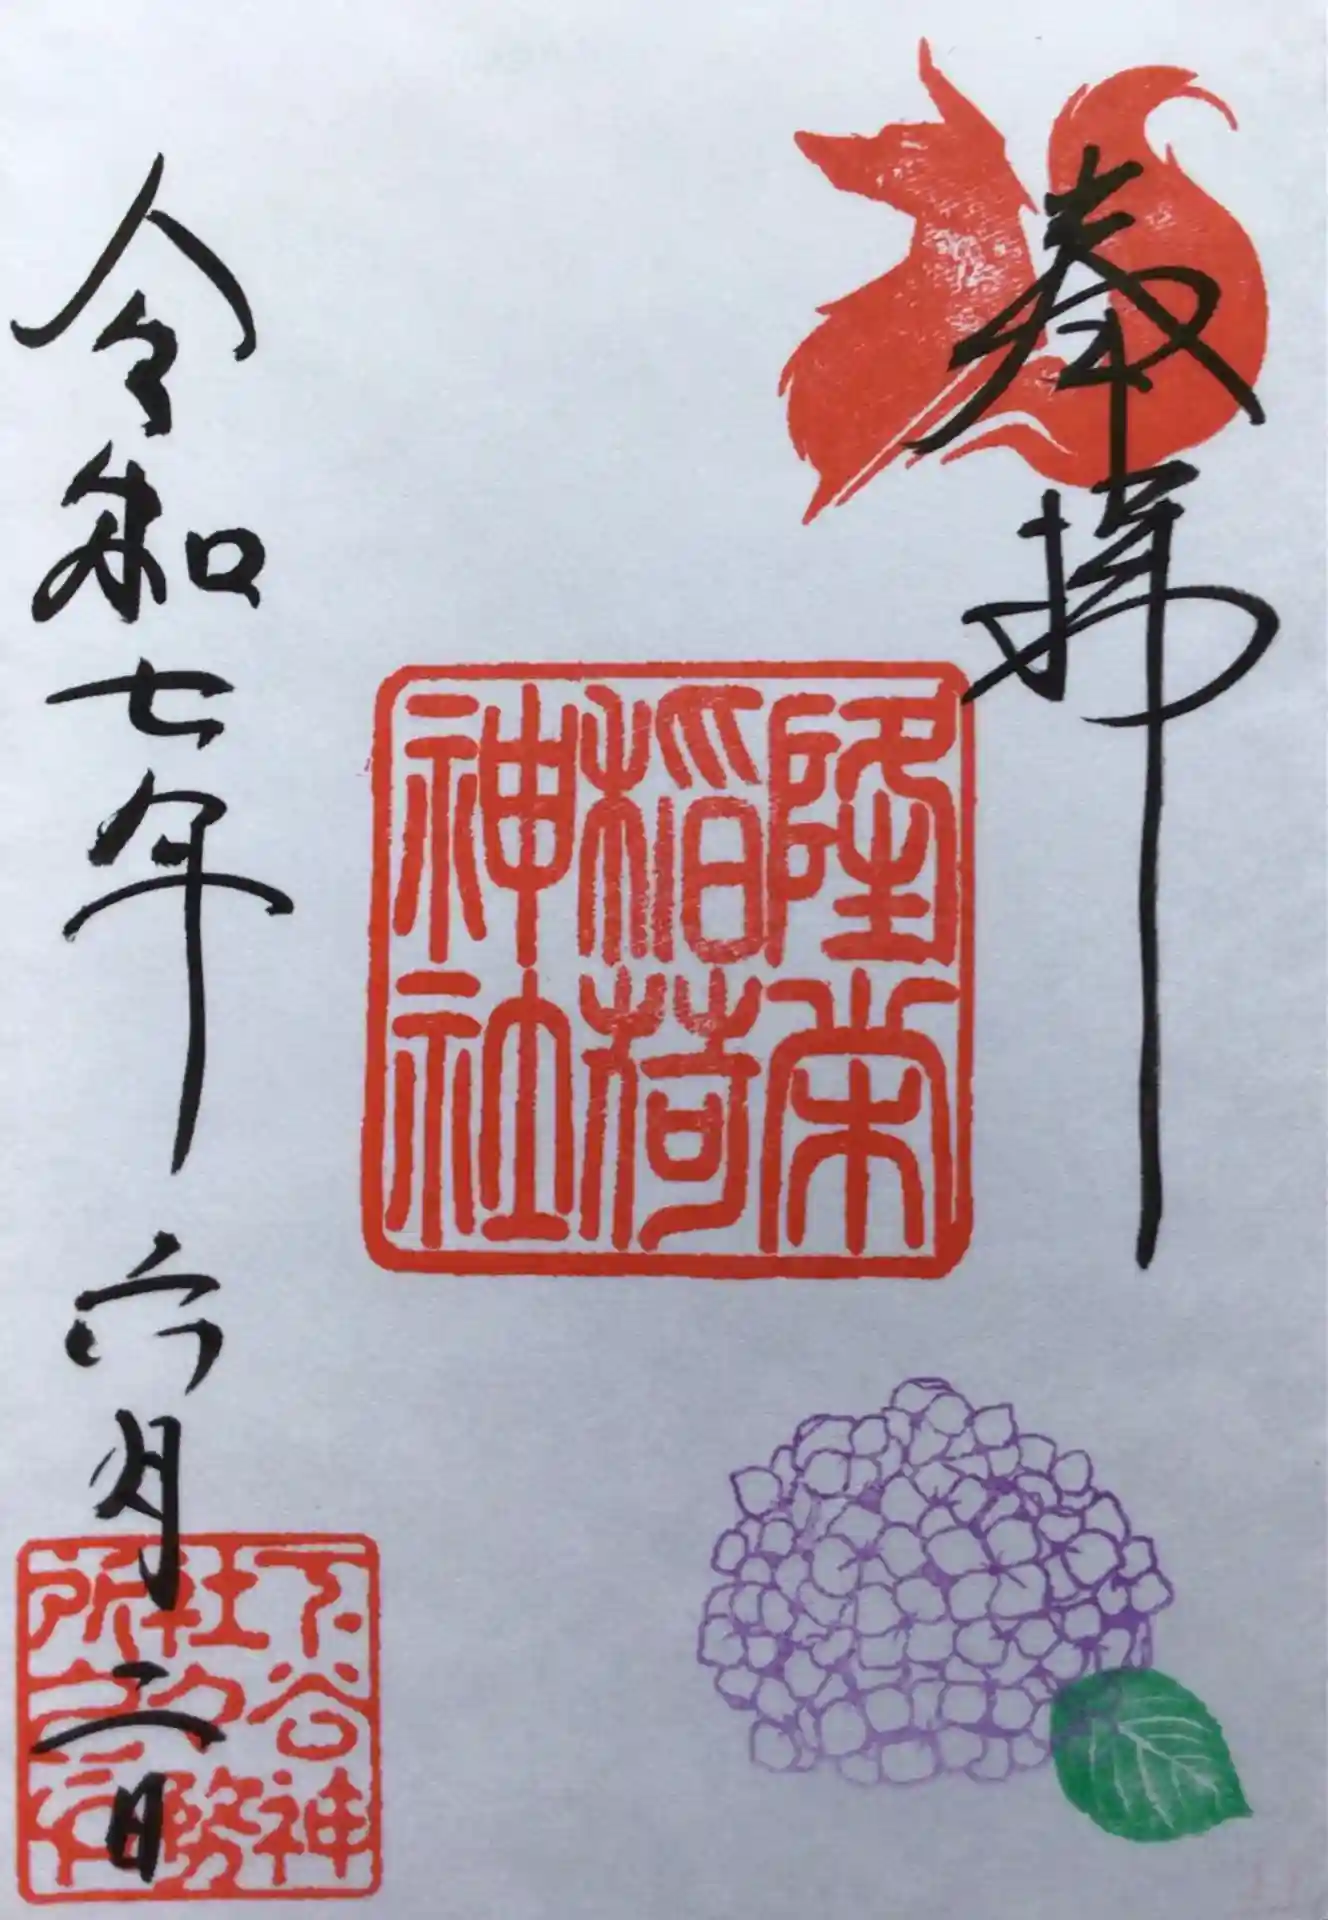 奉拝
隆栄
稲荷
神社
令和七年 六月二日
下谷神
社社務
所之印